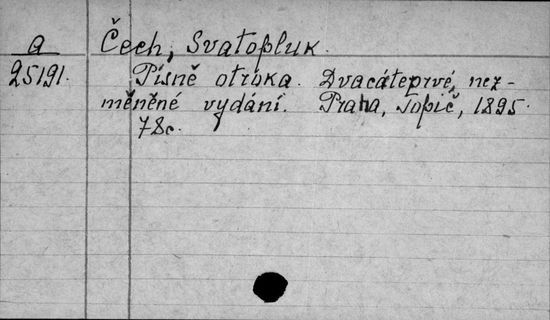 a
Čech, Svatopluk.
25191.
Písně otroka. Dvacáteprvé, nez-
měněné vydání. Praha, Topič, 1895.
78c.